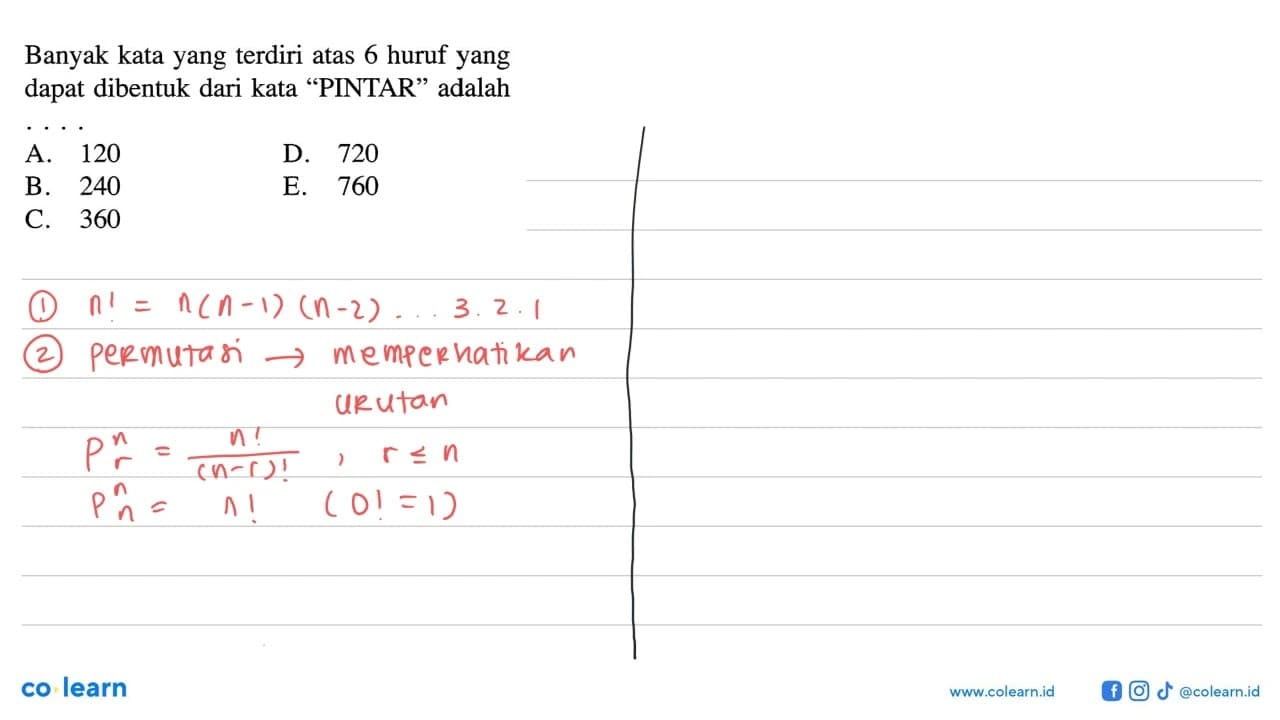 Banyak kata yang terdiri atas 6 huruf yang
dapat dibentuk dari kata “PINTAR” adalah
. . . .
A. 120 D. 720
B. 240 E. 760
C. 360
① n! = n(n-1)(n-2)... 3.2.1
② permutasi → memperhatikan
urutan
P^n_r = n!/(n-r)! , r ≤ n
P^n_n = n! (0! = 1)
co learn
www.colearn.id @colearn.id